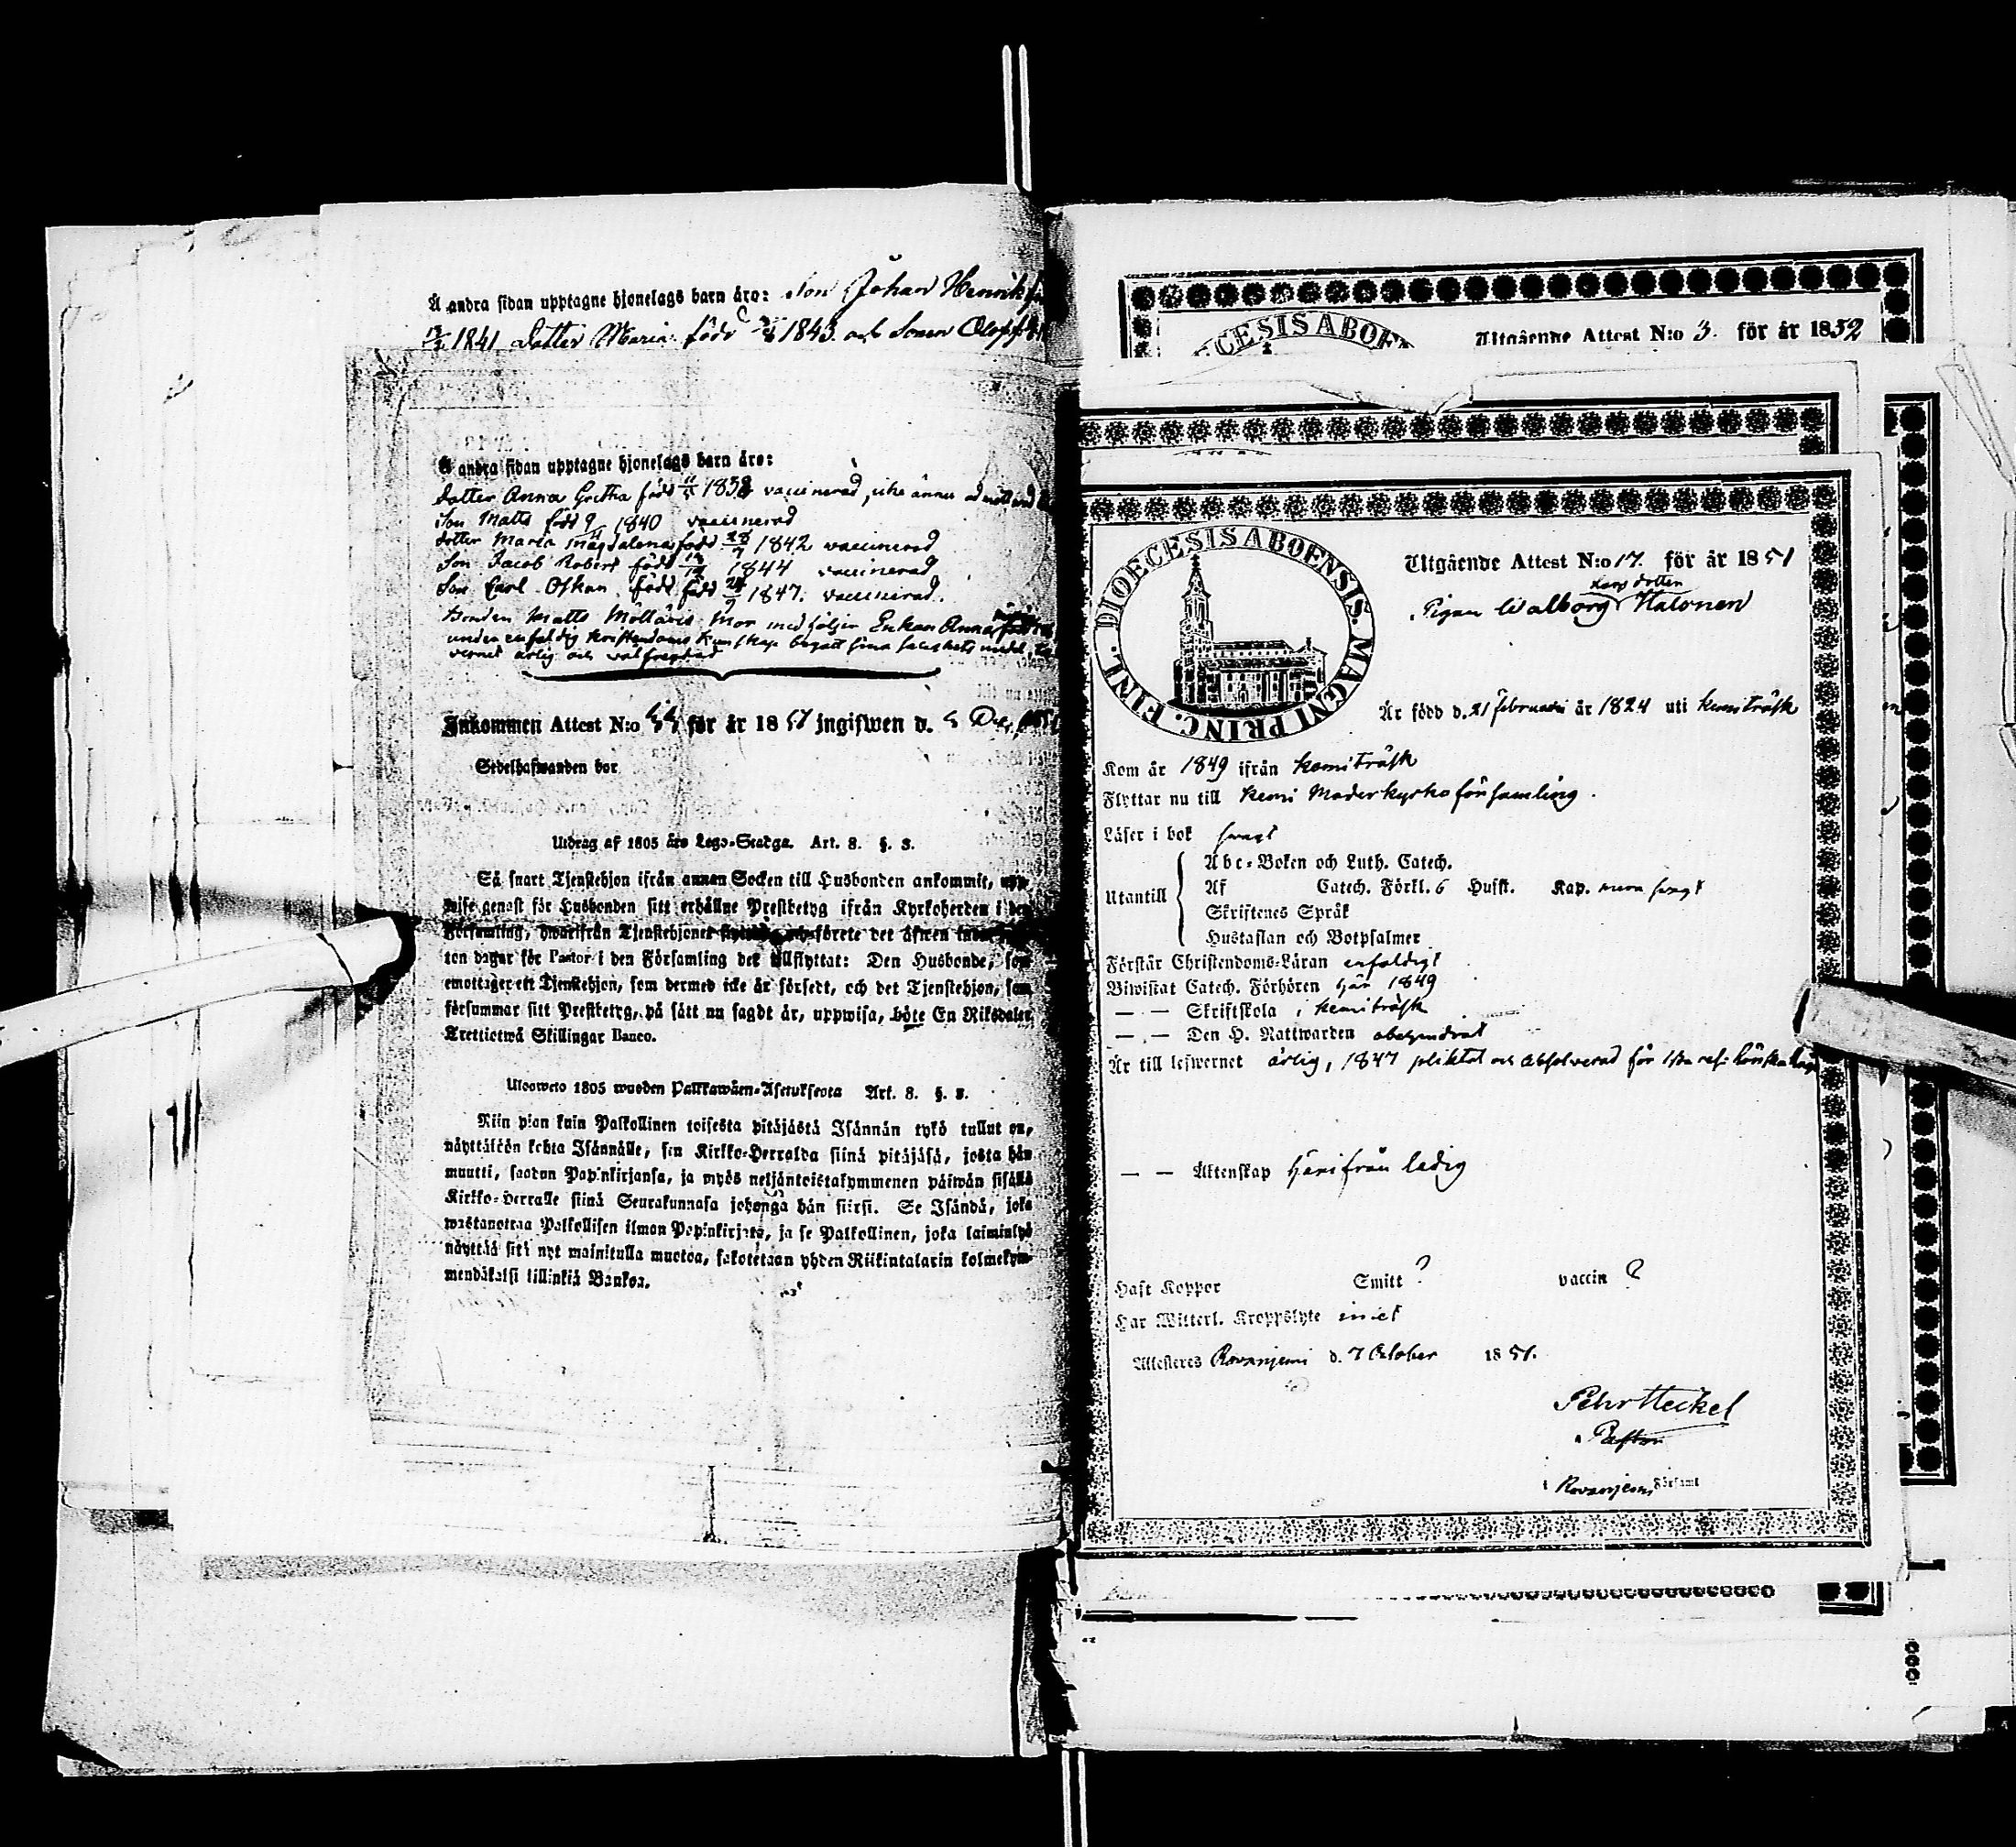 Å andra sidan upptagne hjonelags barn äro: Son Johan Henrik
1841 Dotter Maria född 1843 och Sonen
Å andra sidan upptagne hjonelags barn äro:
dotter Anna Gretha född 11/5 1838 vaccinerad, icke ännu
Son Matts född 9/ 1840 vaccinerad
dotter Maria Magdalena född 28/7 1842 vaccinerad
Son Jacob Robert född 1844 vaccinerad
Son Carl Oskar född född 1847. vaccinerad.
Bonden Matts Möllaris Mor medföljer Enkan Anna
under enfaldig kristendoms kunskap begått sina salighets medel,
vernet ärlig och välfrejdad
Inkommen Attest N:o för år 1851 ingifwen d. Dec.
Sedelhafwanden bor
Utdrag af 1805 års Lego-Stadga. Art. 8. §. 3.
Så snart Tjenstehjon ifrån annan Socken till Husbonden ankommit, upp-
wise genast för Husbonden sitt erhållne Prestbetyg ifrån Kyrkoherden i den
Församling, hwarifrån Tjenstehjonet förete det äfwen
ton dagar för Pastor i den Församling det tillflyttat: Den Husbonde, som
emottager ett Tjenstehjon, som dermed icke är försedt, och det Tjenstehjon, som
försummar sitt Prestbetyg, på sätt nu sagdt är, uppwisa, böte En Riksdaler
Trettiotwå Skillingar Banco.
Ulosweto 1805 wuoden Palkkawäen-Asetuksesta Art. 8. §. 3.
Niin pian kuin Palkollinen toisesta pitäjästä Isännän tykö tullut on,
näyttäköön kohta Isännälle, sen Kirkko-Herralda siinä pitäjäsä, josta hän
muutti, saadun Papinkirjansa, ja myös neljäntoistakymmenen päiwän sisällä
Kirkko-Herralle siinä Seurakunnasa johonga hän siirsi. Se Isändä, joka
wastanottaa Palkollisen ilman Papinkirjata, ja se Palkollinen, joka laiminlyö
näyttää sitä nyt mainitulla muotoa, sakotetaan yhden Riikintalarin kolmekym-
mendäkaksi killinkiä Bankoa.
CESIS ABOEN
Utgående Attest N:o 3. för år 1852
DIOECESIS ABOENSIS. MAGNI PRINC. FINL.
Utgående Attest N:o 17. för år 1851
Lars dotter
Pigan Walborg Halonen
Är född d. 21 februarii år 1824 uti Kemiträsk
Kom år 1849 ifrån Kemiträsk
Flyttar nu till Kemi Moderkyrko församling.
Läser i bok svagt
Utantill
Abc-Boken och Luth. Catech.
Af Catech. Förkl. 6 Hufst. Kap. svagt
Skriftenes Språk
Hustaflan och Botpsalmer
Förstår Christendoms-Läran enfaldigt
Biwistat Catech. Förhören här 1849
— — Skriftskola i Kemiträsk
— — Den H. Nattwarden obehindrat
Är till lefwernet ärlig, 1847 pliktat och absolverad för 1sta resan
— — Äktenskap härifrån ledig
Haft Koppor Smitt ? vaccin ?
Har Witterl. Kroppslyte intet
Attesteres Rovanjemi d. 7 October 1851.
Pehr Heikel
Pastor
i Rovanjemi Församl